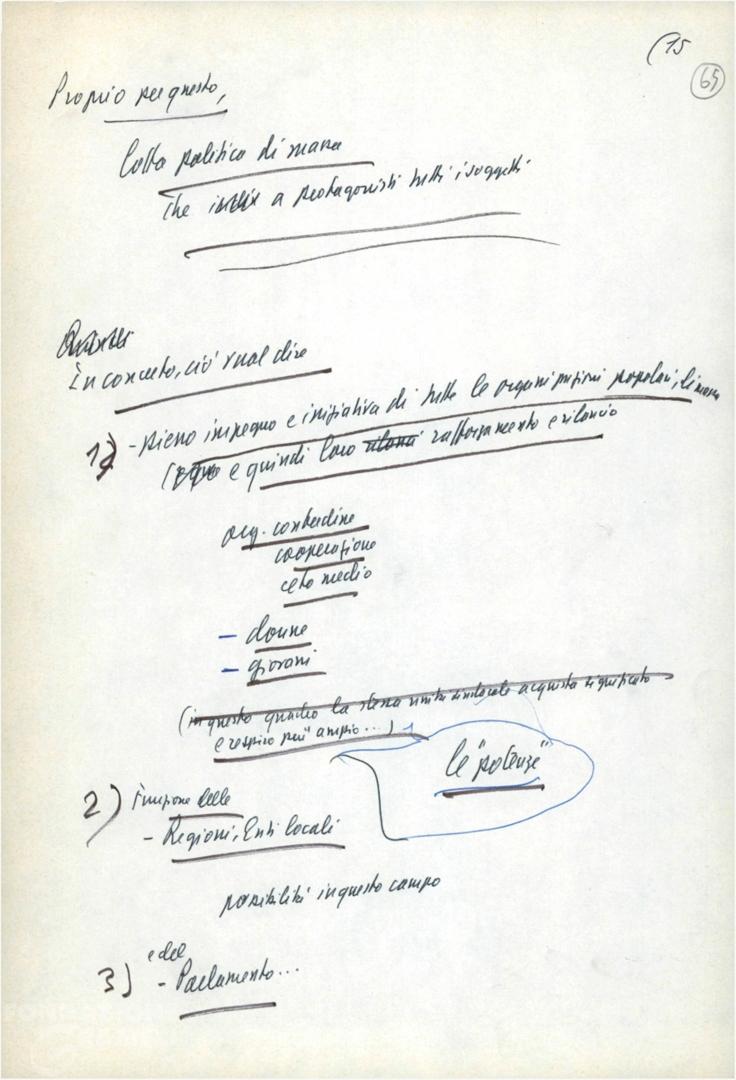 (15
65
Proprio per questo,
lotta politica di massa
che a protagonisti tutti i soggetti
In concreto, ciò vuol dire
1) - pieno impegno e iniziativa di tutte le organizzazioni popolari, di massa
( e quindi loro rafforzamento e rilancio
org. contadine
cooperazione
ceto medio
- donne
- giovani
(in questo quadro la stessa unità sindacale acquista significato
e respiro più ampio...)
le "potenze"
2) Funzione delle
- Regioni, Enti locali
possibilità in questo campo
e del
3) - Parlamento...